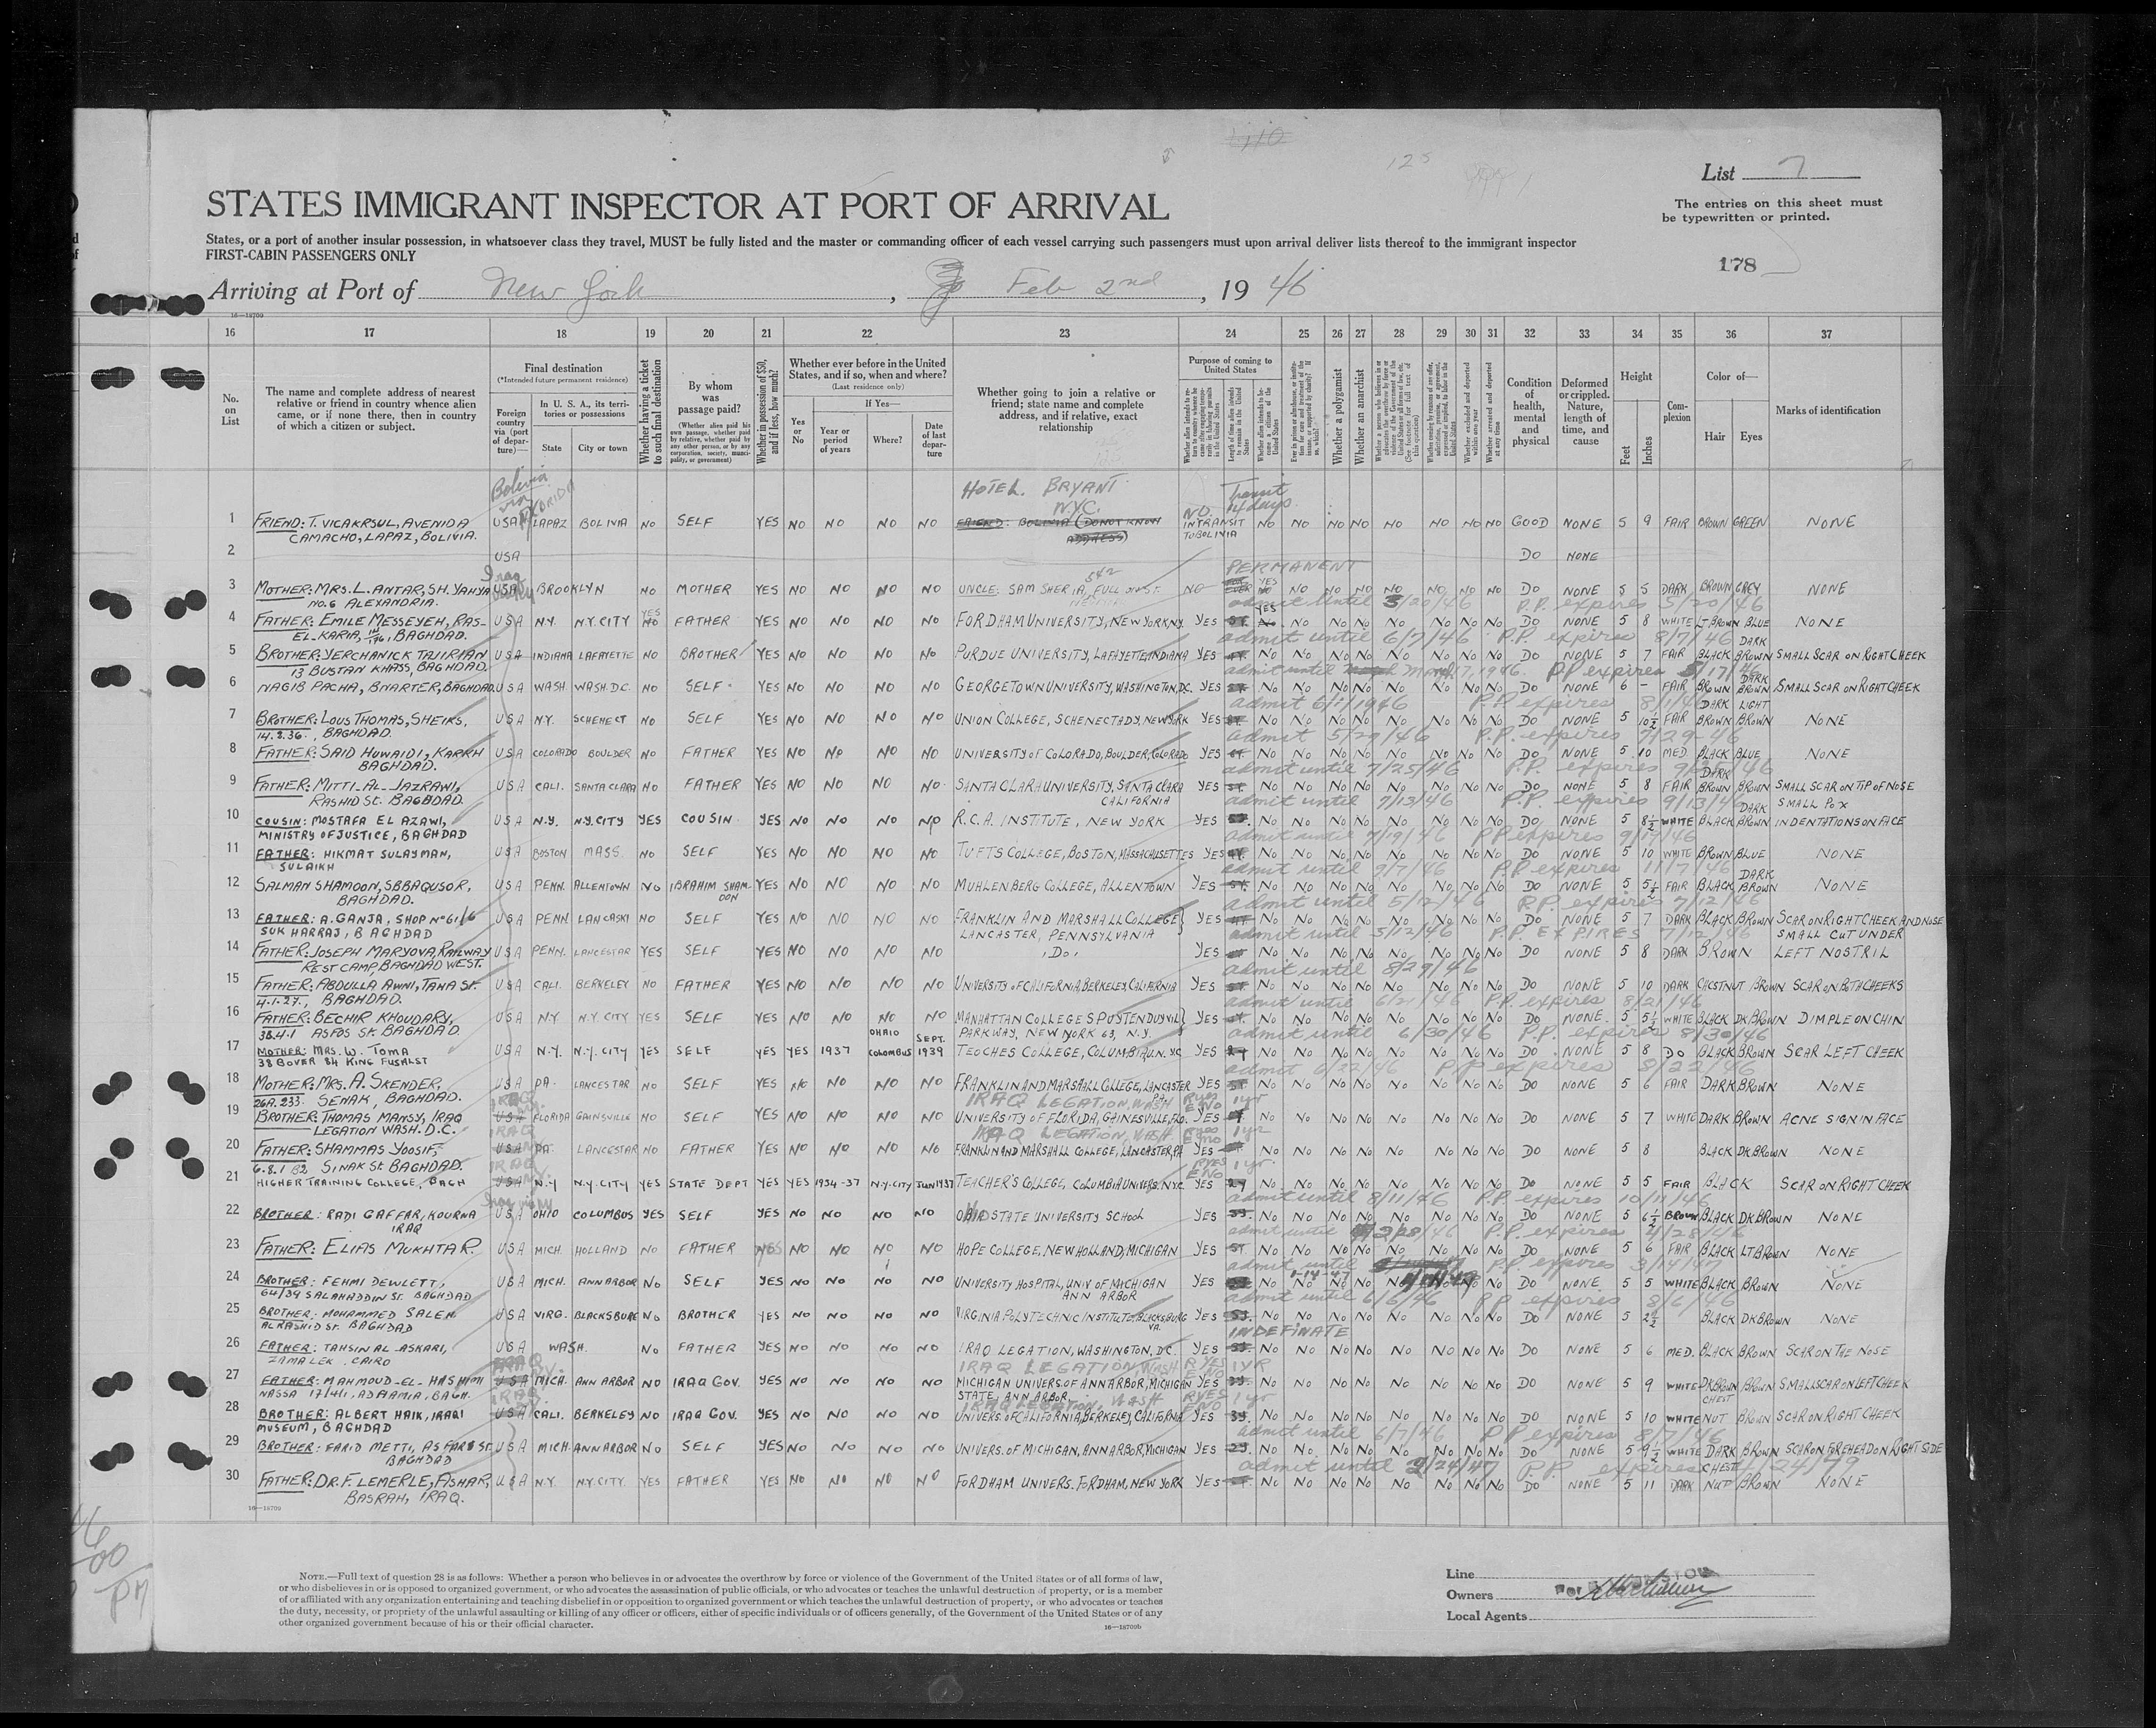 List 7
The entries on this sheet must
be typewritten or printed.
STATES IMMIGRANT INSPECTOR AT PORT OF ARRIVAL
States, or a port of another insular possession, in whatsoever class they travel, MUST be fully listed and the master or commanding officer of each vessel carrying such passengers must upon arrival deliver lists thereof to the immigrant inspector
FIRST-CABIN PASSENGERS ONLY
178
Arriving at Port of New York, Feb 2nd, 19 46
16—18709
16 17 18 19 20 21 22 23 24 25 26 27 28 29 30 31 32 33 34 35 36 37
No. on List
The name and complete address of nearest relative or friend in country whence alien came, or if none there, then in country of which a citizen or subject.
Final destination
(*Intended future permanent residence)
Foreign country via (port of departure)—
In U. S. A., its territories or possessions
State
City or town
Whether having a ticket to such final destination
By whom was passage paid?
(Whether alien paid his own passage, whether paid by relative, whether paid by any other person, or by any corporation, society, municipality, or government)
Whether in possession of $50, and if less, how much?
Whether ever before in the United States, and if so, when and where?
(Last residence only)
Yes or No
If Yes—
Year or period of years
Where?
Date of last departure
Whether going to join a relative or friend; state name and complete address, and if relative, exact relationship
Purpose of coming to United States
Whether a polygamist
Whether an anarchist
Whether arrested and deported at any time
Condition of health, mental and physical
Deformed or crippled. Nature, length of time, and cause
Height
Feet
Inches
Complexion
Color of—
Hair
Eyes
Marks of identification
Bolivia via HOTEL BRYANT N.Y.C. Transit
1 FRIEND: T. VICAKRSUL, AVENIDA CAMACHO, LAPAZ, BOLIVIA. USA LAPAZ BOLIVIA NO SELF YES NO NO NO NO FRIEND: BOLIVIA (DO NOT KNOW ADDRESS) IN TRANSIT TO BOLIVIA NO NO NO NO NO NO NO NO GOOD NONE 5 9 FAIR BROWN GREEN NONE
2 USA DO NONE
PERMANENT
3 MOTHER: MRS. L. ANTAR, SH. YAHYA NO. 6 ALEXANDRIA. USA BROOKLYN NO MOTHER YES NO NO NO NO UNCLE: SAM SHERIA, 542 FULTON ST. NO NO NO NO NO NO NO NO DO NONE 5 5 DARK BROWN GREY NONE
admit until 5/20/46 P.P. expires 5/20/46
4 FATHER: EMILE MESSEYEH, RAS-EL-KARIA, BAGHDAD. USA N.Y. N.Y. CITY YES NO FATHER YES NO NO NO NO FORDHAM UNIVERSITY, NEW YORK N.Y. YES NO NO NO NO NO NO NO NO DO NONE 5 8 WHITE LT BROWN BLUE NONE
admit until 6/7/46 P.P. expires 8/7/46
5 BROTHER: YERCHANICK TAJIRIAN 13 BUSTAN KHASS, BAGHDAD. USA INDIANA LAFAYETTE NO BROTHER YES NO NO NO NO PURDUE UNIVERSITY, LAFAYETTE INDIANA YES NO NO NO NO NO NO NO NO DO NONE 5 7 FAIR BLACK DARK BROWN SMALL SCAR ON RIGHT CHEEK
admit until March 17, 1946. P.P. expires 5/17/46
6 NAGIB PACHA, BNARTER, BAGHDAD. USA WASH. WASH. D.C. NO SELF YES NO NO NO NO GEORGETOWN UNIVERSITY, WASHINGTON, D.C. YES NO NO NO NO NO NO NO NO DO NONE 6 - FAIR BROWN DARK BROWN SMALL SCAR ON RIGHT CHEEK
admit 6/1/1946 P.P. expires 8/1/46
7 BROTHER: LOUS THOMAS, SHEIKS, 14.2.36., BAGHDAD. USA N.Y. SCHENECT NO SELF YES NO NO NO NO UNION COLLEGE, SCHENECTADY, NEW YORK YES NO NO NO NO NO NO NO NO DO NONE 5 10½ FAIR DARK BROWN LIGHT BROWN NONE
admit 5/29/46 P.P. expires 7/29-46
8 FATHER: SAID HUWAIDI, KARKH BAGHDAD. USA COLORADO BOULDER NO FATHER YES NO NO NO NO UNIVERSITY OF COLORADO, BOULDER, COLORADO YES NO NO NO NO NO NO NO NO DO NONE 5 10 MED. BLACK BLUE NONE
admit until 7/25/46 P.P. expires 9/25/46
9 FATHER: MITTI-AL-JAZRAWI, RASHID ST. BAGHDAD. USA CALI. SANTA CLARA NO FATHER YES NO NO NO NO SANTA CLARA UNIVERSITY, SANTA CLARA CALIFORNIA YES NO NO NO NO NO NO NO NO DO NONE 5 8 FAIR DARK BROWN BROWN SMALL SCAR ON TIP OF NOSE
admit until 7/13/46 P.P. expires 9/13/46
10 COUSIN: MOSTAFA EL AZAWI, MINISTRY OF JUSTICE, BAGHDAD USA N.Y. N.Y. CITY YES COUSIN YES NO NO NO NO R.C.A. INSTITUTE, NEW YORK YES NO NO NO NO NO NO NO NO DO NONE 5 8½ WHITE BLACK DARK BROWN SMALL POX INDENTATIONS ON FACE
admit until 7/19/46 P.P. expires 9/19/46
11 FATHER: HIKMAT SULAYMAN, SULAIKH USA BOSTON MASS. NO SELF YES NO NO NO NO TUFTS COLLEGE, BOSTON, MASSACHUSETTES YES NO NO NO NO NO NO NO NO DO NONE 5 10 WHITE BROWN BLUE NONE
admit until 9/7/46 P.P. expires 11/7/46
12 SALMAN SHAMOON, SBBAQUSOR, BAGHDAD. USA PENN. ALLENTOWN NO IBRAHIM SHAMOON YES NO NO NO NO MUHLENBERG COLLEGE, ALLENTOWN YES NO NO NO NO NO NO NO NO DO NONE 5 5½ FAIR BLACK DARK BROWN NONE
admit until 5/12/46 P.P. expires 7/12/46
13 FATHER: A. GANJA, SHOP No 61/6 SUK HARRAJ, BAGHDAD USA PENN LANCASKI NO SELF YES NO NO NO NO FRANKLIN AND MARSHALL COLLEGE LANCASTER, PENNSYLVANIA YES NO NO NO NO NO NO NO NO DO NONE 5 7 DARK BLACK BROWN SCAR ON RIGHT CHEEK AND NOSE
admit until 5/12/46 P.P. EXPIRES 7/12/46
14 FATHER: JOSEPH MARYOVA, RAILWAY REST CAMP, BAGHDAD WEST. USA PENN. LANCESTAR YES SELF YES NO NO NO NO DO YES NO NO NO NO NO NO NO NO DO NONE 5 8 DARK BROWN SMALL CUT UNDER LEFT NOSTRIL
admit until 8/29/46
15 FATHER: ABDULLA AWNI, TAHA ST. 4.1.27., BAGHDAD. USA CALI. BERKELEY NO FATHER YES NO NO NO NO UNIVERSITY OF CALIFORNIA, BERKELEY, CALIFORNIA YES NO NO NO NO NO NO NO NO DO NONE 5 10 DARK CHESTNUT BROWN SCAR ON BOTH CHEEKS
admit until 6/21/46 P.P. expires 8/21/46
16 FATHER: BECHIR KHOUDARY, 38.4.1 ASFOS ST. BAGHDAD. USA N.Y. N.Y. CITY YES SELF YES NO NO NO NO MANHATTAN COLLEGE PARKWAY, NEW YORK 63, N.Y. YES NO NO NO NO NO NO NO NO DO NONE 5 5½ WHITE BLACK DK BROWN DIMPLE ON CHIN
admit until 6/30/46 P.P. expires 8/30/46
17 MOTHER: MRS. W. TOMA 38 BOVER 84 KING FUSALST USA N.Y. N.Y. CITY YES SELF YES YES 1937 OHAIO COLOMBUS SEPT. 1939 TEOCHES COLLEGE, COLUMBIA UN. N.Y.C YES NO NO NO NO NO NO NO NO DO NONE 5 8 DO BLACK BROWN SCAR LEFT CHEEK
admit 6/22/46 P.P. expires 8/22/46
18 MOTHER: MRS. A. SKENDER, 26A.233. SENAK, BAGHDAD. USA PA. LANCESTAR NO SELF YES NO NO NO NO FRANKLIN AND MARSHALL COLLEGE, LANCASTER PA. YES NO NO NO NO NO NO NO NO DO NONE 5 6 FAIR DARK BROWN NONE
IRAQ LEGATION, WASH 1 yr
19 BROTHER: THOMAS MANSY, IRAQ LEGATION WASH. D.C. USA FLORIDA GAINSVILLE NO SELF YES NO NO NO NO UNIVERSITY OF FLORIDA, GAINESVILLE, FLO. YES NO NO NO NO NO NO NO NO DO NONE 5 7 WHITE DARK BROWN ACNE SIGN IN FACE
IRAQ LEGATION, WASH 1 yr
20 FATHER: SHAMMAS YOOSIF, 6.8.1 B2 SINAK ST BAGHDAD. USA PA. LANCESTAR NO FATHER YES NO NO NO NO FRANKLIN AND MARSHALL COLLEGE, LANCASTER, PA YES NO NO NO NO NO NO NO NO DO NONE 5 8 BLACK DK BROWN NONE
1 yr.
21 HIGHER TRAINING COLLEGE, BAGH USA N.Y N.Y. CITY YES STATE DEPT YES YES 1934-37 N.Y. CITY JUN 1937 TEACHER'S COLLEGE, COLUMBIA UNIVERS. N.Y.C. YES NO NO NO NO NO NO NO NO DO NONE 5 5 FAIR BLACK SCAR ON RIGHT CHEEK
admit until 8/11/46 P.P. expires 10/11/46
22 BROTHER: RADI GAFFAR, KOURNA IRAQ USA OHIO COLUMBUS YES SELF YES NO NO NO NO OHIO STATE UNIVERSITY SCHOOL YES NO NO NO NO NO NO NO NO DO NONE 5 6½ BROWN BLACK DK BROWN NONE
admit until 2/28/46 P.P. expires 4/28/46
23 FATHER: ELIAS MUKHTAR. USA MICH. HOLLAND NO FATHER YES NO NO NO NO HOPE COLLEGE, NEW HOLLAND, MICHIGAN YES NO NO NO NO NO NO NO NO DO NONE 5 6 FAIR BLACK LT BROWN NONE
admit until 1-14-47 P.P. expires 3/14/47
24 BROTHER: FEHMI DEWLETT, 64/39 SALAHADDIN ST. BAGHDAD USA MICH. ANN ARBOR NO SELF YES NO NO NO NO UNIVERSITY HOSPITAL, UNIV OF MICHIGAN ANN ARBOR YES NO NO NO NO NO NO DO NONE 5 5 WHITE BLACK BROWN NONE
admit until 6/6/46 P.P. expires 8/6/46
25 BROTHER: MOHAMMED SALEH ALRASHID ST. BAGHDAD USA VIRG. BLACKSBURG NO BROTHER YES NO NO NO NO VIRGINIA POLYTECHNIC INSTITUTE, BLACKSBURG VA. YES NO NO NO NO NO NO NO NO DO NONE 5 2½ BLACK DK BROWN NONE
INDEFINATE
26 FATHER: TAHSIN AL-ASKARI, ZAMALEK. CAIRO USA WASH. NO FATHER YES NO NO NO NO IRAQ LEGATION, WASHINGTON, D.C. YES NO NO NO NO NO NO NO NO DO NONE 5 6 MED. BLACK BROWN SCAR ON THE NOSE
IRAQ LEGATION, WASH 1 YR
27 FATHER: MAHMOUD-EL-HASHIMI NASSA 17/4/1, ADHAMIA, BAGH. USA MICH. ANN ARBOR NO IRAQ GOV. YES NO NO NO NO MICHIGAN UNIVERS. OF ANN ARBOR, MICHIGAN STATE, ANN ARBOR. YES NO NO NO NO NO NO NO NO DO NONE 5 9 WHITE DK BROWN BROWN SMALL SCAR ON LEFT CHEEK
IRAQ LEGATION, WASH 1 yr
28 BROTHER: ALBERT HAIK, IRAQI MUSEUM, BAGHDAD USA CALI. BERKELEY NO IRAQ GOV. YES NO NO NO NO UNIVERS. OF CALIFORNIA, BERKELEY, CALIFORNIA YES NO NO NO NO NO NO NO NO DO NONE 5 10 WHITE CHESTNUT BROWN SCAR ON RIGHT CHEEK
admit until 6/7/46 P.P. expires 8/7/46
29 BROTHER: FARID METTI, ASFARS ST, BAGHDAD USA MICH. ANN ARBOR NO SELF YES NO NO NO NO UNIVERS. OF MICHIGAN, ANN ARBOR, MICHIGAN YES NO NO NO NO NO NO NO NO DO NONE 5 9½ WHITE DARK BROWN SCAR ON FOREHEAD ON RIGHT SIDE
admit until 2/24/47 P.P. expires
30 FATHER: DR. F. LEMERLE, ASHAR, BASRAH, IRAQ. USA N.Y. N.Y. CITY. YES FATHER YES NO NO NO NO FORDHAM UNIVERS. FORDHAM, NEW YORK YES NO NO NO NO NO NO NO NO DO NONE 5 11 DARK CHESTNUT BROWN NONE
16—18709
NOTE.—Full text of question 28 is as follows: Whether a person who believes in or advocates the overthrow by force or violence of the Government of the United States or of all forms of law,
or who disbelieves in or is opposed to organized government, or who advocates the assassination of public officials, or who advocates or teaches the unlawful destruction of property, or is a member
of or affiliated with any organization entertaining and teaching disbelief in or opposition to organized government or which teaches the unlawful destruction of property, or who advocates or teaches
the duty, necessity, or propriety of the unlawful assaulting or killing of any officer or officers, either of specific individuals or of officers generally, of the Government of the United States or of any
other organized government because of his or their official character.
16—18709b
Line
Owners
Local Agents